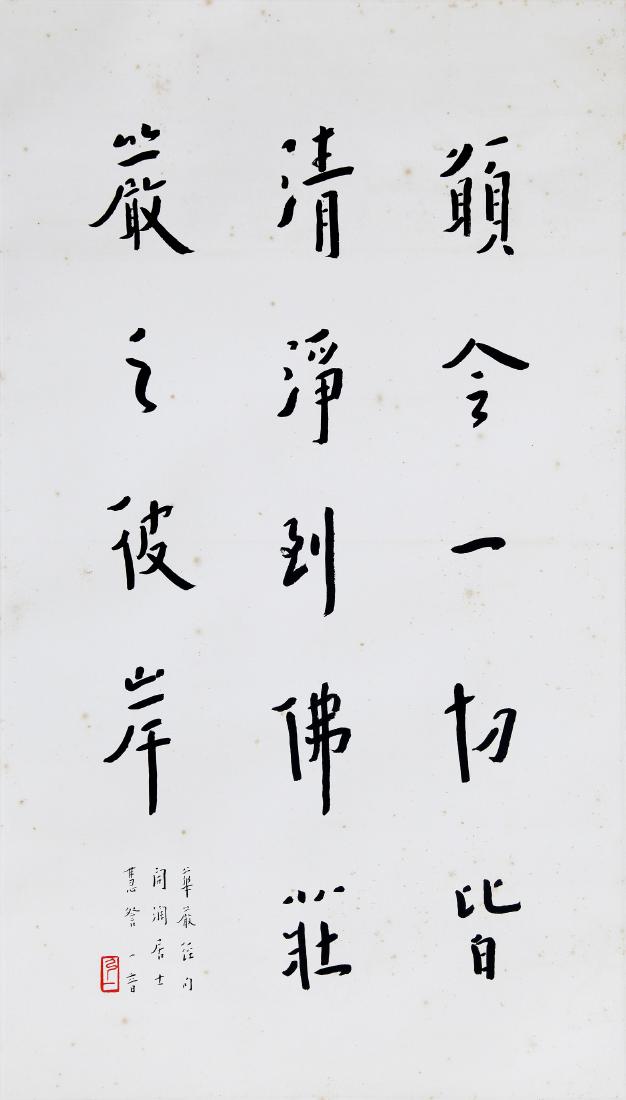 願令一切皆
清淨到佛莊
嚴之彼岸
華嚴經句
聞潤居士
慧詧一音